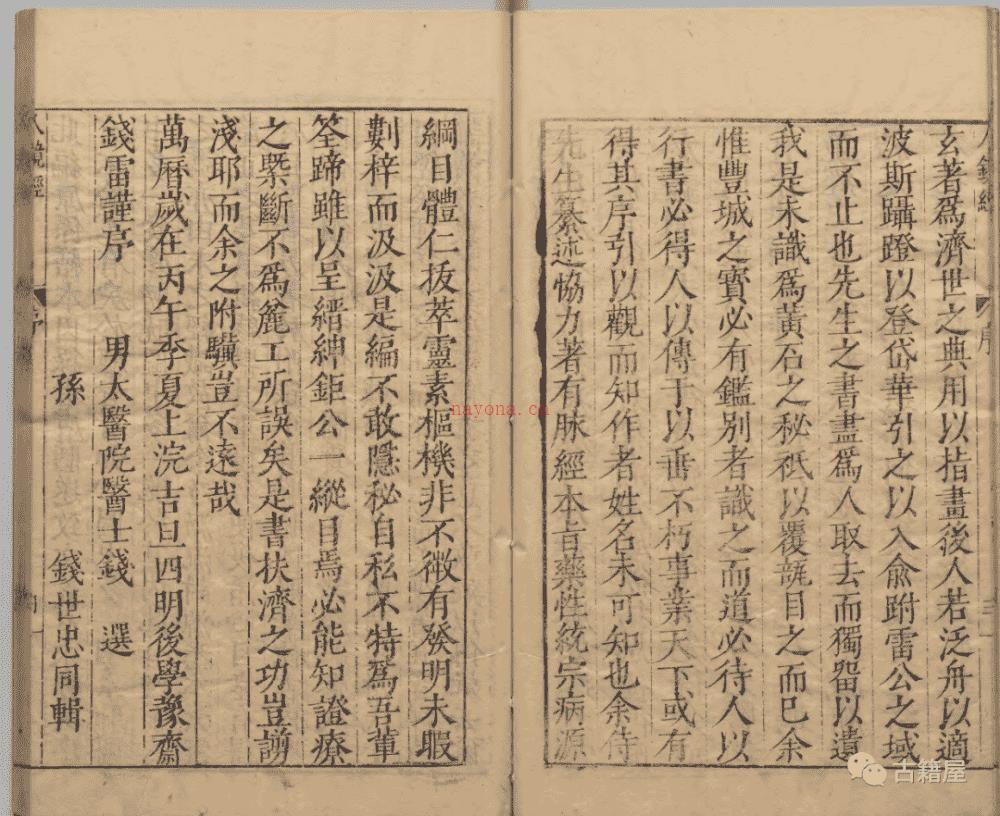 玄著爲濟世之典用以指畫後人若泛舟以適
波斯躡蹬以登岱華引之以入兪跗雷公之域
而不止也先生之書盡爲人取去而獨畱以遺
我是未識爲黃石之秘祇以覆瓿目之而已余
惟豐城之寶必有鑑別者識之而道必待人以
行書必得人以傳于以垂不朽事業天下或有
得其序引以觀而知作者姓名未可知也余侍
先生纂述恊力著有脉經本旨藥性統宗病源
綱目體仁拔萃靈素樞機非不微有發明未暇
剞梓而汲汲是編不敢隱秘自私不特爲吾輩
筌蹄雖以呈縉紳鉅公一縱目焉必能知證療
之槩斷不爲麄工所誤矣是書扶濟之功豈謭
淺耶而余之附驥豈不遠哉
萬曆歲在丙午季夏上浣吉旦四明後學豫齋
錢雷謹序 男太醫院醫士錢 選
孫 錢世忠同輯
人鏡經
序
nayona.cn
古籍屋